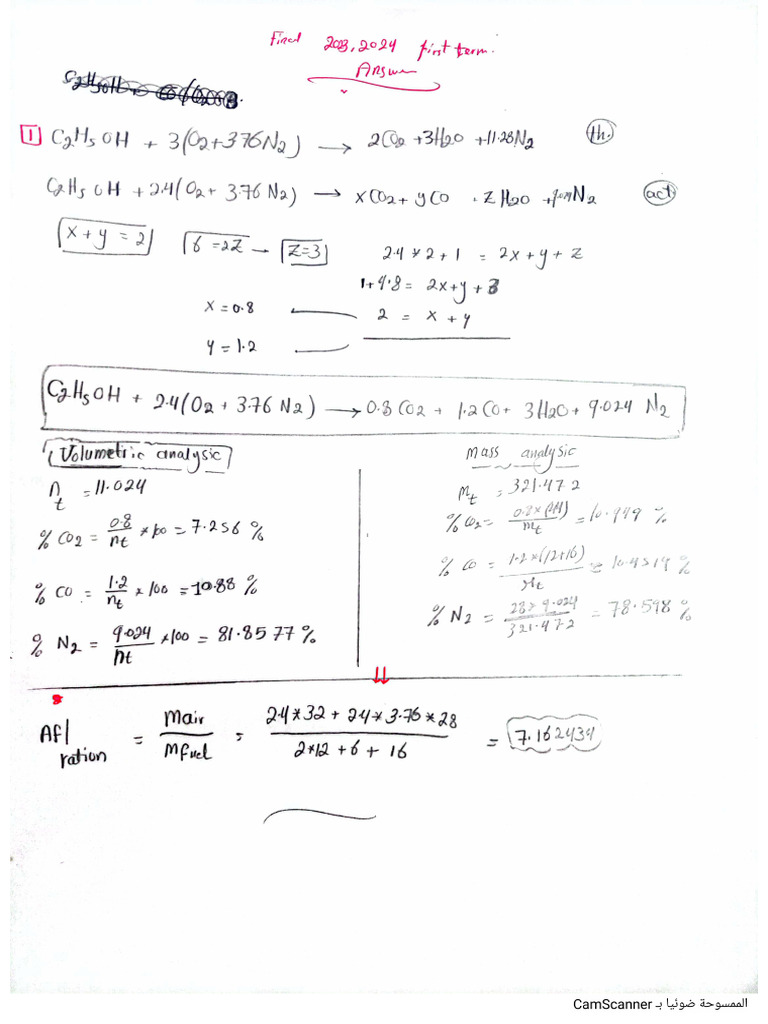 Final 2023,2024 first term.
Answer
1 C2H5OH + 3(O2+3.76N2) → 2CO2 +3H2O +11.28N2 (th.)
C2H5OH +2.4(O2+ 3.76 N2) → xCO2+ yCO + Z H2O +9.024N2 (act)
x + y = 2 6 =2Z → Z=3 2.4 * 2 + 1 = 2x + y + Z
1+4.8 = 2x+y + 3
x = 0.8 2 = x + y
y = 1.2
C2H5OH + 2.4(O2 + 3.76 N2) → 0.8 CO2 + 1.2 CO+ 3H2O+ 9.024 N2
Volumetric analysic
nt = 11.024
% CO2 = 0.8/nt * 100 = 7.256 %
% CO = 1.2/nt * 100 = 10.88 %
% N2 = 9.024/nt *100 = 81.8577 %
mass analysic
mt = 321.472
% CO2 = 0.8*(44)/mt = 10.949 %
% CO = 1.2*(12+16)/mt = 10.4519 %
% N2 = 28*9.024/321.472 = 78.598 %
Af/ration = Mair/Mfuel = 2.4*32 + 2.4*3.76*28/2*12 +6 + 16 = 7.162434
الممسوحة ضوئيا بـ CamScanner